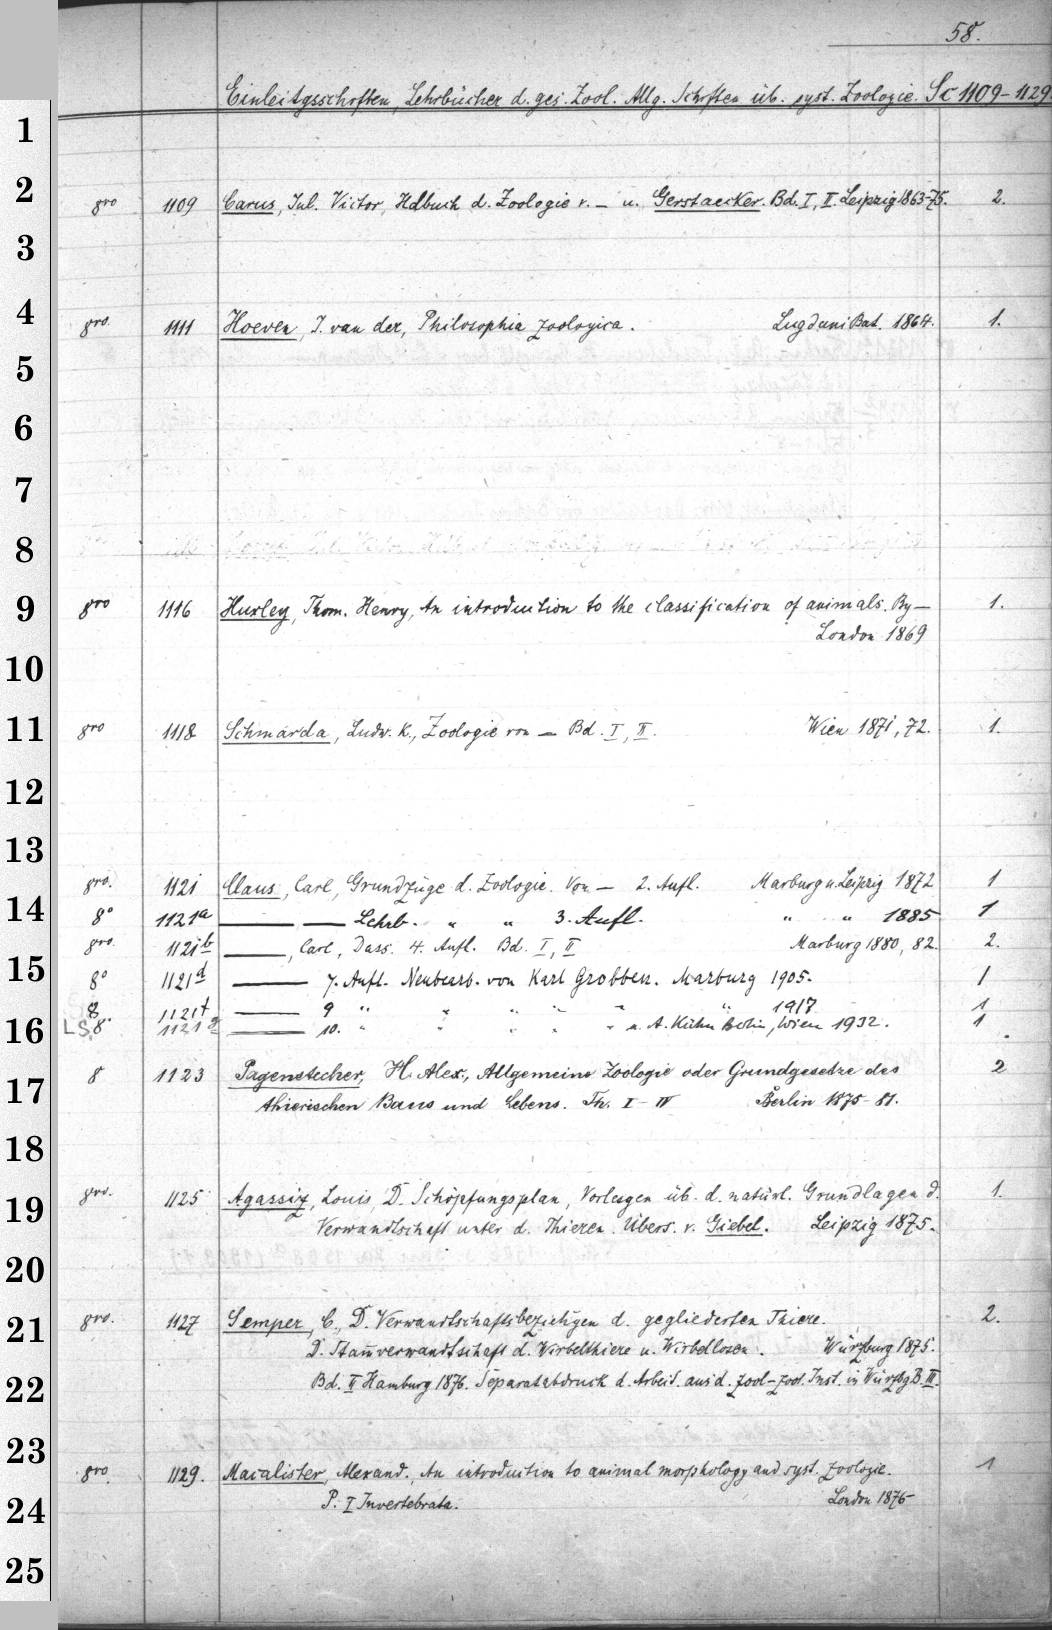 58.
Einleitgsschriften, Lehrbücher d. ges. Zool. Allg. Schriften üb. syst. Zoologie. Sc 1109-1129
1
2
8vo 1109 Carus, Jul. Victor, Hdbuch d. Zoologie v. — u. Gerstaecker. Bd. I, II. Leipzig 1863-75. 2.
3
4
8vo. 1111 Hoeven, J. van der, Philosophia zoologica. Lugduni Bat. 1864. 1.
5
6
7
8
9
8vo 1116 Huxley, Thom. Henry, An introduction to the classification of animals. By — 1.
London 1869
10
11
8vo 1118 Schmarda, Ludw. K., Zoologie von — Bd. I, II. Wien 1871, 72. 1.
12
13
8vo. 1121 Claus, Carl, Grundzüge d. Zoologie. Von — 2. Aufl. Marburg u. Leipzig 1872 1
14
8° 1121a — — Lehrb. " " 3. Aufl. " " 1885 1
8vo. 1121b —, Carl, Dass. 4. Aufl. Bd. I, II Marburg 1880, 82. 2.
15
8° 1121d — 7. Aufl. Neubearb. von Karl Grobben. Marburg 1905. 1
8 1121f — 9 " " " " " " 1917 1
16
LS 8° 1121g — 10. " " " " " u. A. Kühn Berlin, Wien 1932. 1
8 1123 Pagenstecher, H. Alex., Allgemeine Zoologie oder Grundgesetze des 2
17
thierischen Baus und Lebens. Th. I-IV Berlin 1875-81.
18
19
8vo. 1125 Agassiz, Louis, D. Schöpfungsplan, Vorlesgen üb. d. natürl. Grundlagen d. 1.
Verwandtschaft unter d. Thieren. Übers. v. Giebel. Leipzig 1875.
20
21
8vo. 1127 Semper, C., D. Verwandtschaftsbeziehgen d. gegliederten Thiere. 2.
D. Stam̄verwandtschaft d. Wirbelthiere u. Wirbellosen. Würzburg 1875.
22
Bd. II Hamburg 1876. Separatabdruck d. Arbeit. aus d. zool-zoot. Inst. in Würzbg B. III.
23
8vo. 1129. Macalister, Alexand., An introduction to animal morphology and syst. zoologie. 1
24
P. I Invertebrata. London 1876
25